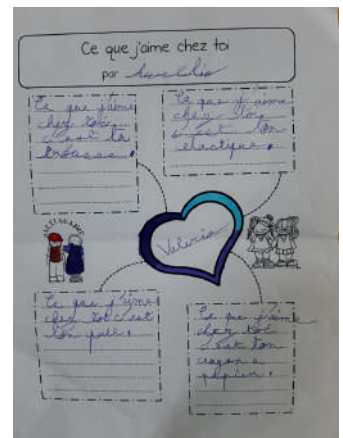 Ce que j'aime chez toi
par Aurelio
Ce que j'aime
chez toi c
c'est ta
trousse.
Ce que j'aime
chez toi
c'est ton
elastique.
Valeria
Ce que j'aime
chez toi c'est
ton pull.
Ce que j'aime
chez toi
c'est ton
crayon a
papier.